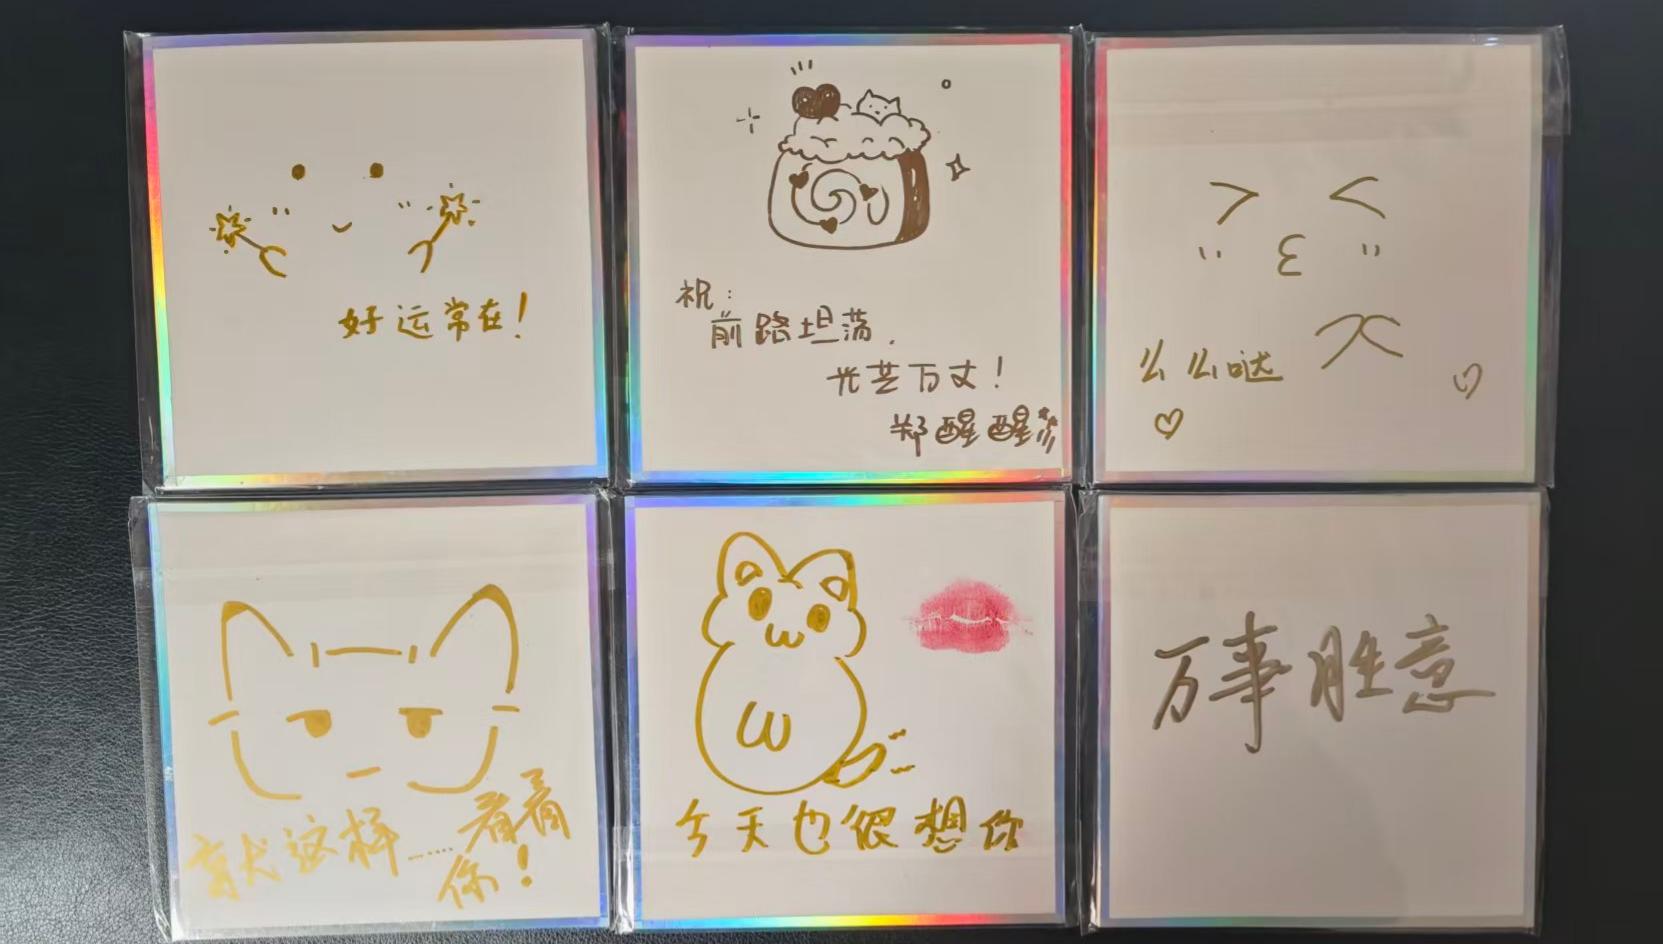 好运常在！
祝：
前路坦荡.
光芒万丈！
郑醒醒
么么哒
就这样……看着
你！
今天也很想你
万事胜意